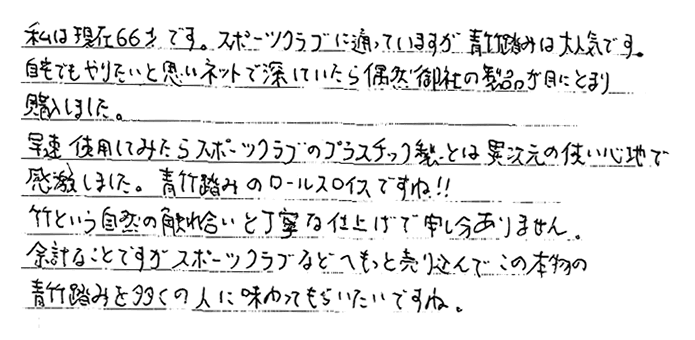 私は現在66才です。スポーツクラブに通っていますが青竹踏みは大人気です。
自宅でもやりたいと思いネットで深していたら偶然御社の製品が目にとまり
購入しました。
早速使用してみたらスポーツクラブのプラスチック製とは異次元の使い心地で
感激しました。青竹踏みのロールスロイスですね!!
竹という自然の触れ合いと丁寧な仕上げで申し分ありません。
余計なことですがスポーツクラブなどへもっと売り込んでこの本物の
青竹踏みを多くの人に味わってもらいたいですね。